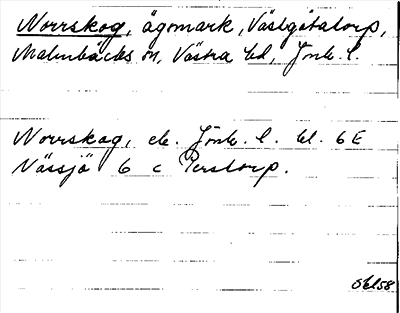 Norrskog, ägomark, Västgötatorp,
Malmbäcks sn, Västra hd, Jönk. l.
Norrskog, ek. Jönk. l. bl. 6 E
Nässjö 6 c Perstorp.